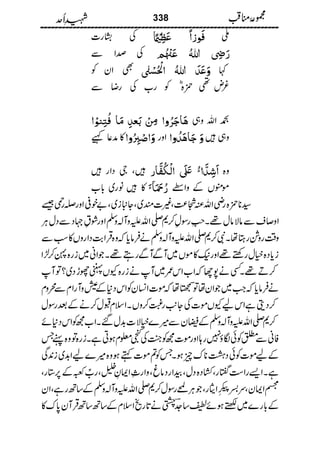 مجموعہ مناقب 338 شہید اُحد
ملی فَوزًا عَظِيمًا کی بشارت
رَضِيَ اللہُ عَنْهُم کی صدا سے
کہا وَعَدَ اللہُ الْحُسْنٰی بھی ان کو
غرض تھی حمزہؓ کو رب کی رضا سے
بحمد اللہ وہی هَاجَرُوا مِنْ بَعدِ مَا فُتِنُوا
وہی ہیں وَ جَاهَدُوا اور وَصَبَرُوا کا مدعا کہئے
وہ اَشِدَّاءُ عَلَى الْكُفَّارِ ہیں، جی دار ہیں
مومنوں کے واسطے رُحَمَآءُ کا ہیں نوری باب
سیدنا حمزہ رضی اللہ عنہ شجاعت، غیرت مندی، جانبازی، بے خوفی اور صلہ رحمی جیسے
اوصاف سے مالا مال تھے۔ حب رسول کریم صلی اللہ علیہ وآلہ وسلم اور شوق جہاد سے دل ہر
وقت روشن رہتا تھا۔ نبی کریم صلی اللہ علیہ وآلہ وسلم نے فرمایا کہ وہ قرابت داروں کا سب سے
زیادہ خیال رکھتے تھے اور نیک کاموں میں آگے آگے رہتے تھے۔ جوانی میں زرہ اتار کر لڑا
کرتے تھے۔ کسی نے پوچھا کہ اب اس عمر میں آپ نے زرہ کیوں پہننی چھوڑ دی؟ تو آپ
نے فرمایا کہ جب میں جوان تھا تو سمجھتا تھا کہ موت انسان کو اس دنیا کے عیش و آرام سے محروم
کر دیتی ہے اس لیے کیوں موت کی جانب رغبت کروں۔ اسلام قبول کرنے کے بعد رسول
کریم صلی اللہ علیہ وآلہ وسلم کے فیضان نے میرے خیالات بدل گئے۔ اب مجھ کو اس دنیائے
فانی سے مطلق کوئی لگاؤ نہیں رہا اور موت مجھ کو جنت کی کنجی معلوم ہوتی ہے۔ زرہ تو وہ پہنے جس
کے لیے موت کوئی دہشت ناک چیز ہو۔ جس موت کو تم موت کہتے ہو وہ میرے لیے ابدی زندگی
ہے۔ ایسے راست گفتار، کشادہ دل، بیدار دماغ، وارث ایمان خلیل، رب کعبہ کے پرستار،
مجسم ایمان، سر بسر پیکر ایثار، جو ہر لمحے رسول کریم صلی اللہ علیہ وآلہ وسلم کے ساتھ رہے، ان
کے بارے میں لکھتے ہوئے لطیف ساجد چشتی نے تاریخ اسلام کے ساتھ ساتھ قرآن پاک کا